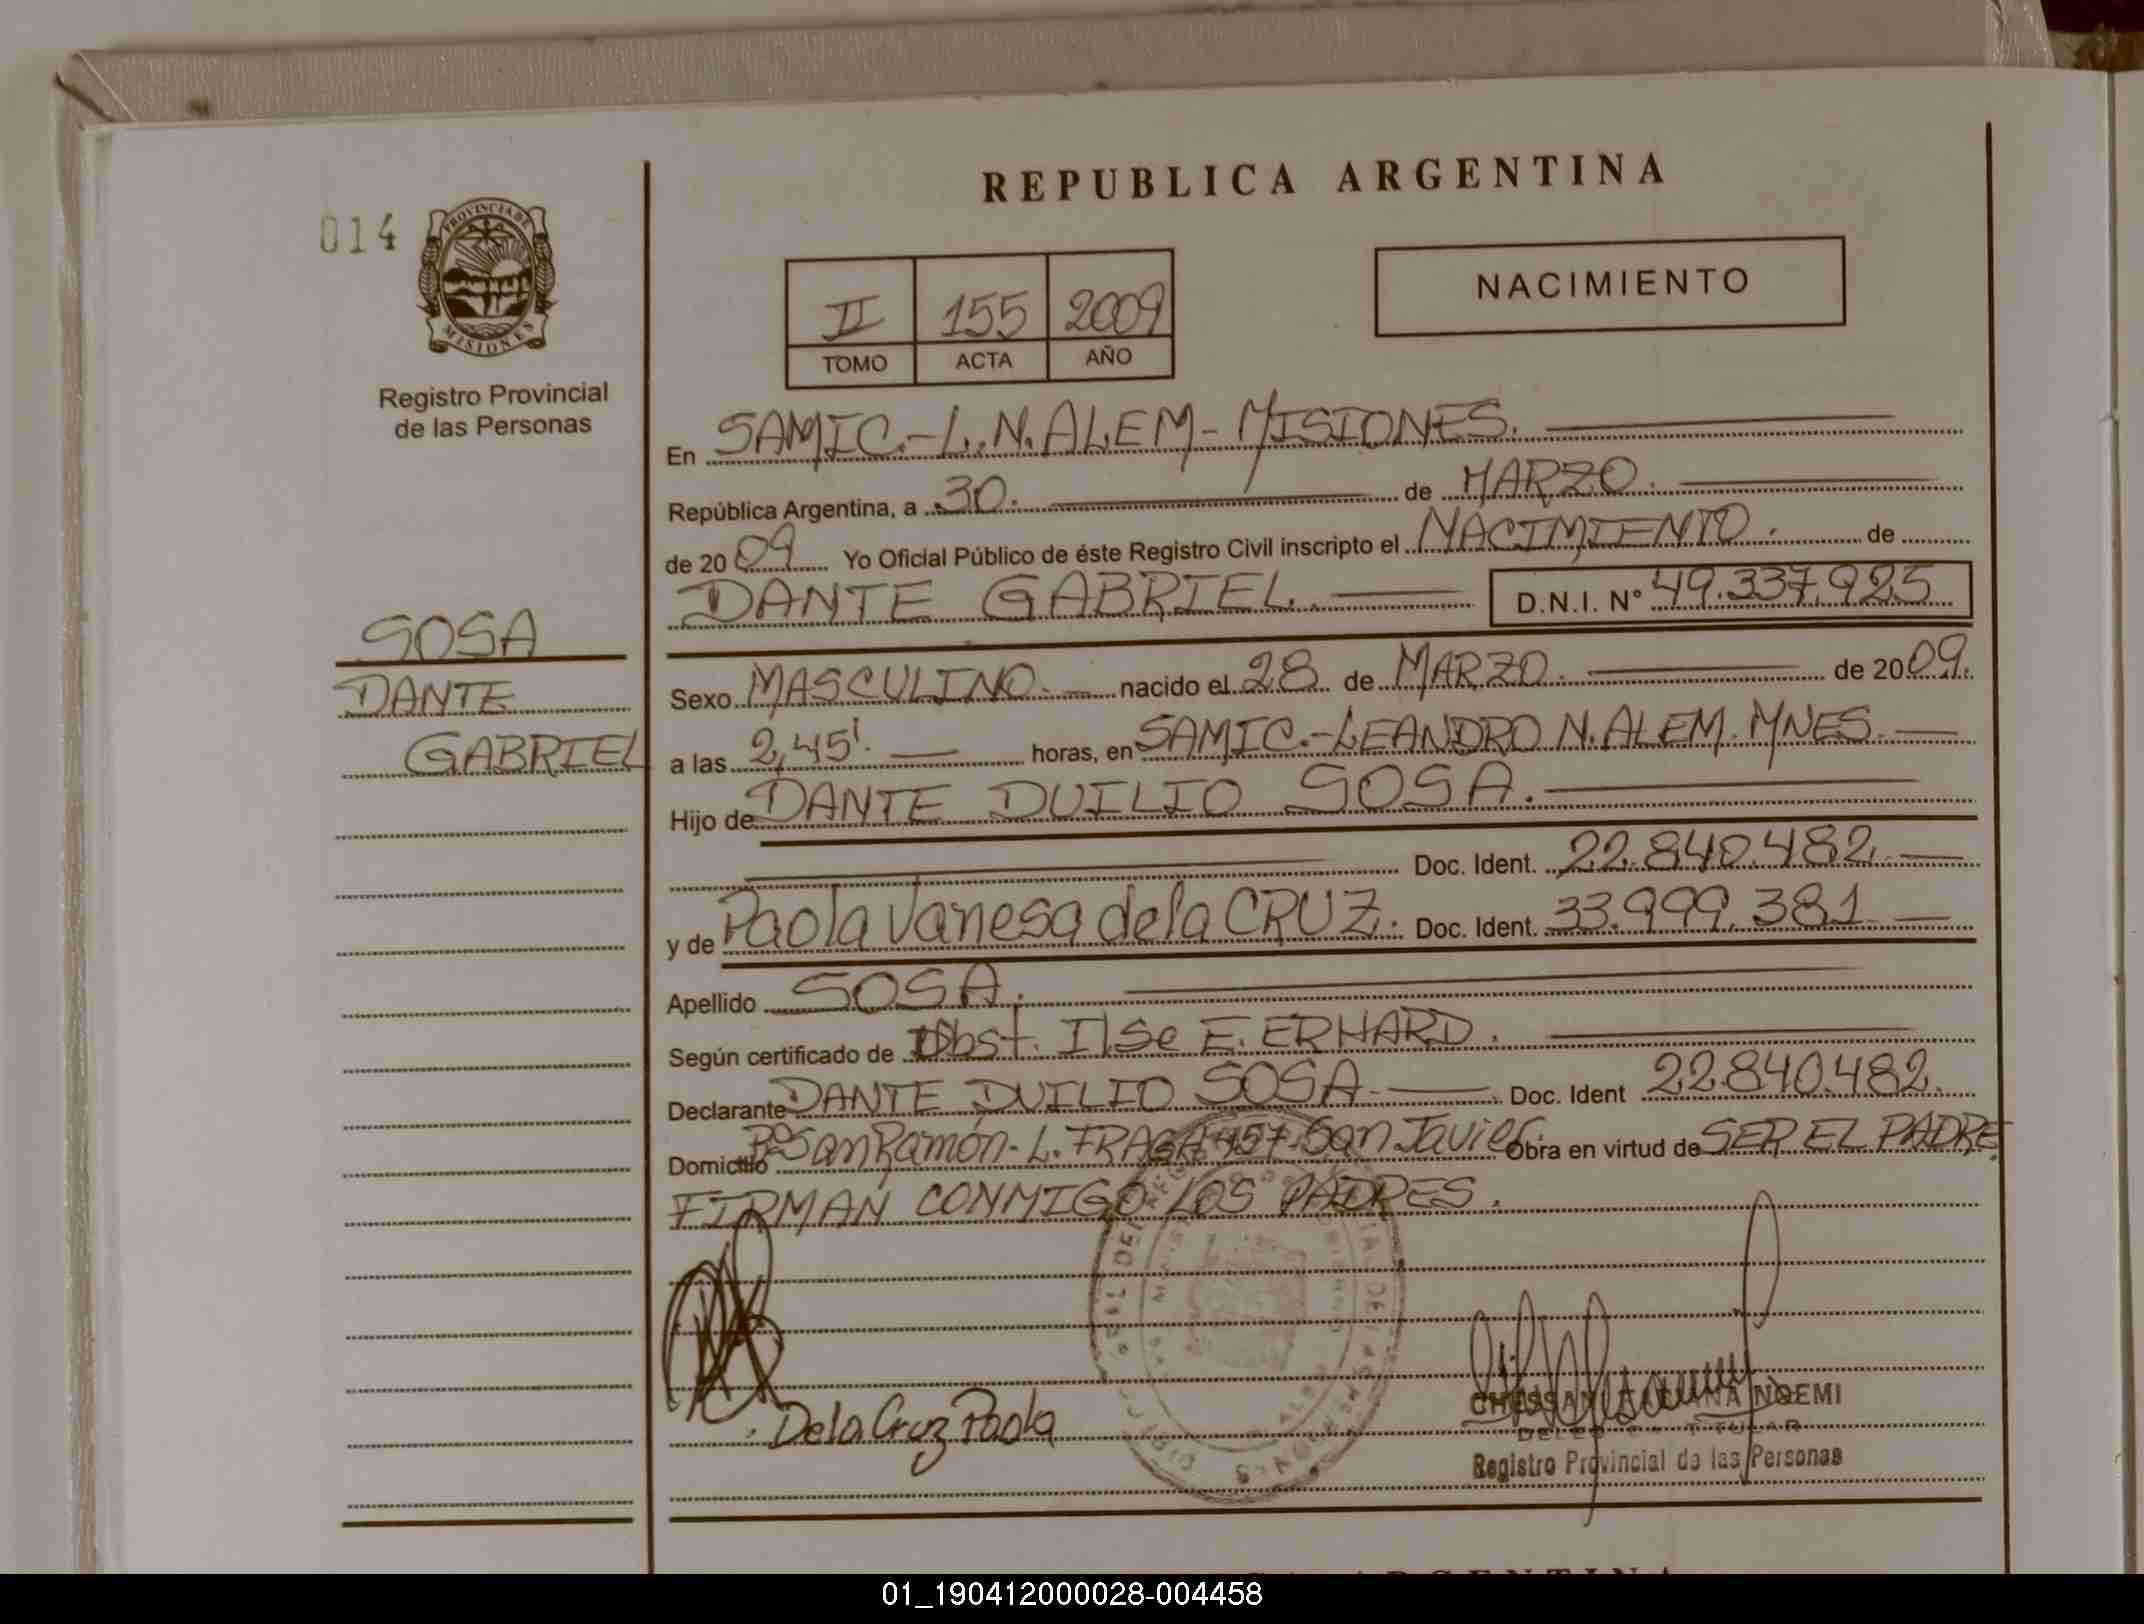 REPUBLICA ARGENTINA
014
PROVINCIA DE
MISIONES
Registro Provincial
de las Personas
II 155 2009
TOMO ACTA AÑO
NACIMIENTO
En SAMIC.-L.N.ALEM-MISIONES.
República Argentina, a 30. de MARZO.
de 2009 Yo Oficial Público de éste Registro Civil inscripto el NACIMIENTO. de
DANTE GABRIEL. D.N.I. Nº 49.337.925
SOSA
DANTE
GABRIEL
Sexo MASCULINO.- nacido el 28 de MARZO. de 2009.
a las 2,45'. horas, en SAMIC.-LEANDRO N.ALEM.MNES.
Hijo de DANTE DUILIO SOSA.
Doc. Ident. 22.840.482.
y de Paola Vanesa de la CRUZ. Doc. Ident. 33.999.381
Apellido SOSA.
Según certificado de Obst. Ilse E. ERHARD.
Declarante DANTE DUILIO SOSA. Doc. Ident 22.840.482.
Domicilio Bº San Ramón-L. FRAGA 457-San Javier. Obra en virtud de SER EL PADRE.
FIRMAN CONMIGO LOS PADRES.
De la Cruz Paola
NOEMI
TITULAR
Registro Provincial de las Personas
ARGENTINA
01_190412000028-004458